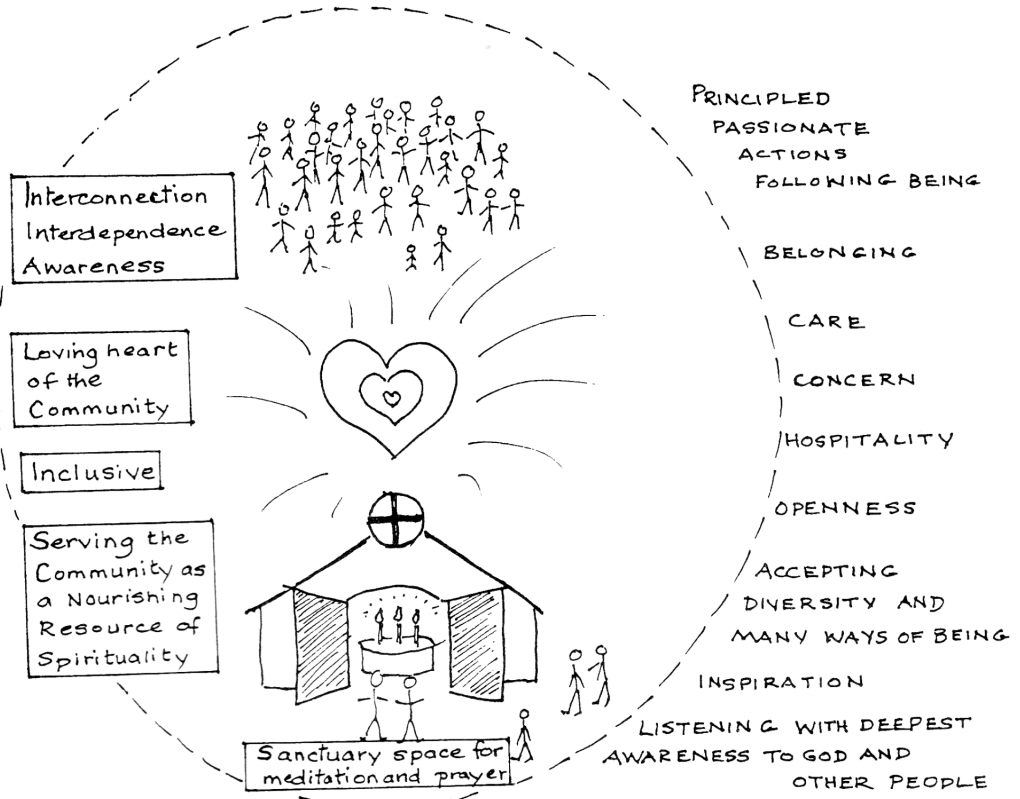 Interconnection
Interdependence
Awareness
Loving heart
of the
Community
Inclusive
Serving the
Community as
a Nourishing
Resource of
Spirituality
Sanctuary space for
meditation and prayer
PRINCIPLED
PASSIONATE
ACTIONS
FOLLOWING BEING
BELONGING
CARE
CONCERN
HOSPITALITY
OPENNESS
ACCEPTING
DIVERSITY AND
MANY WAYS OF BEING
INSPIRATION
LISTENING WITH DEEPEST
AWARENESS TO GOD AND
OTHER PEOPLE